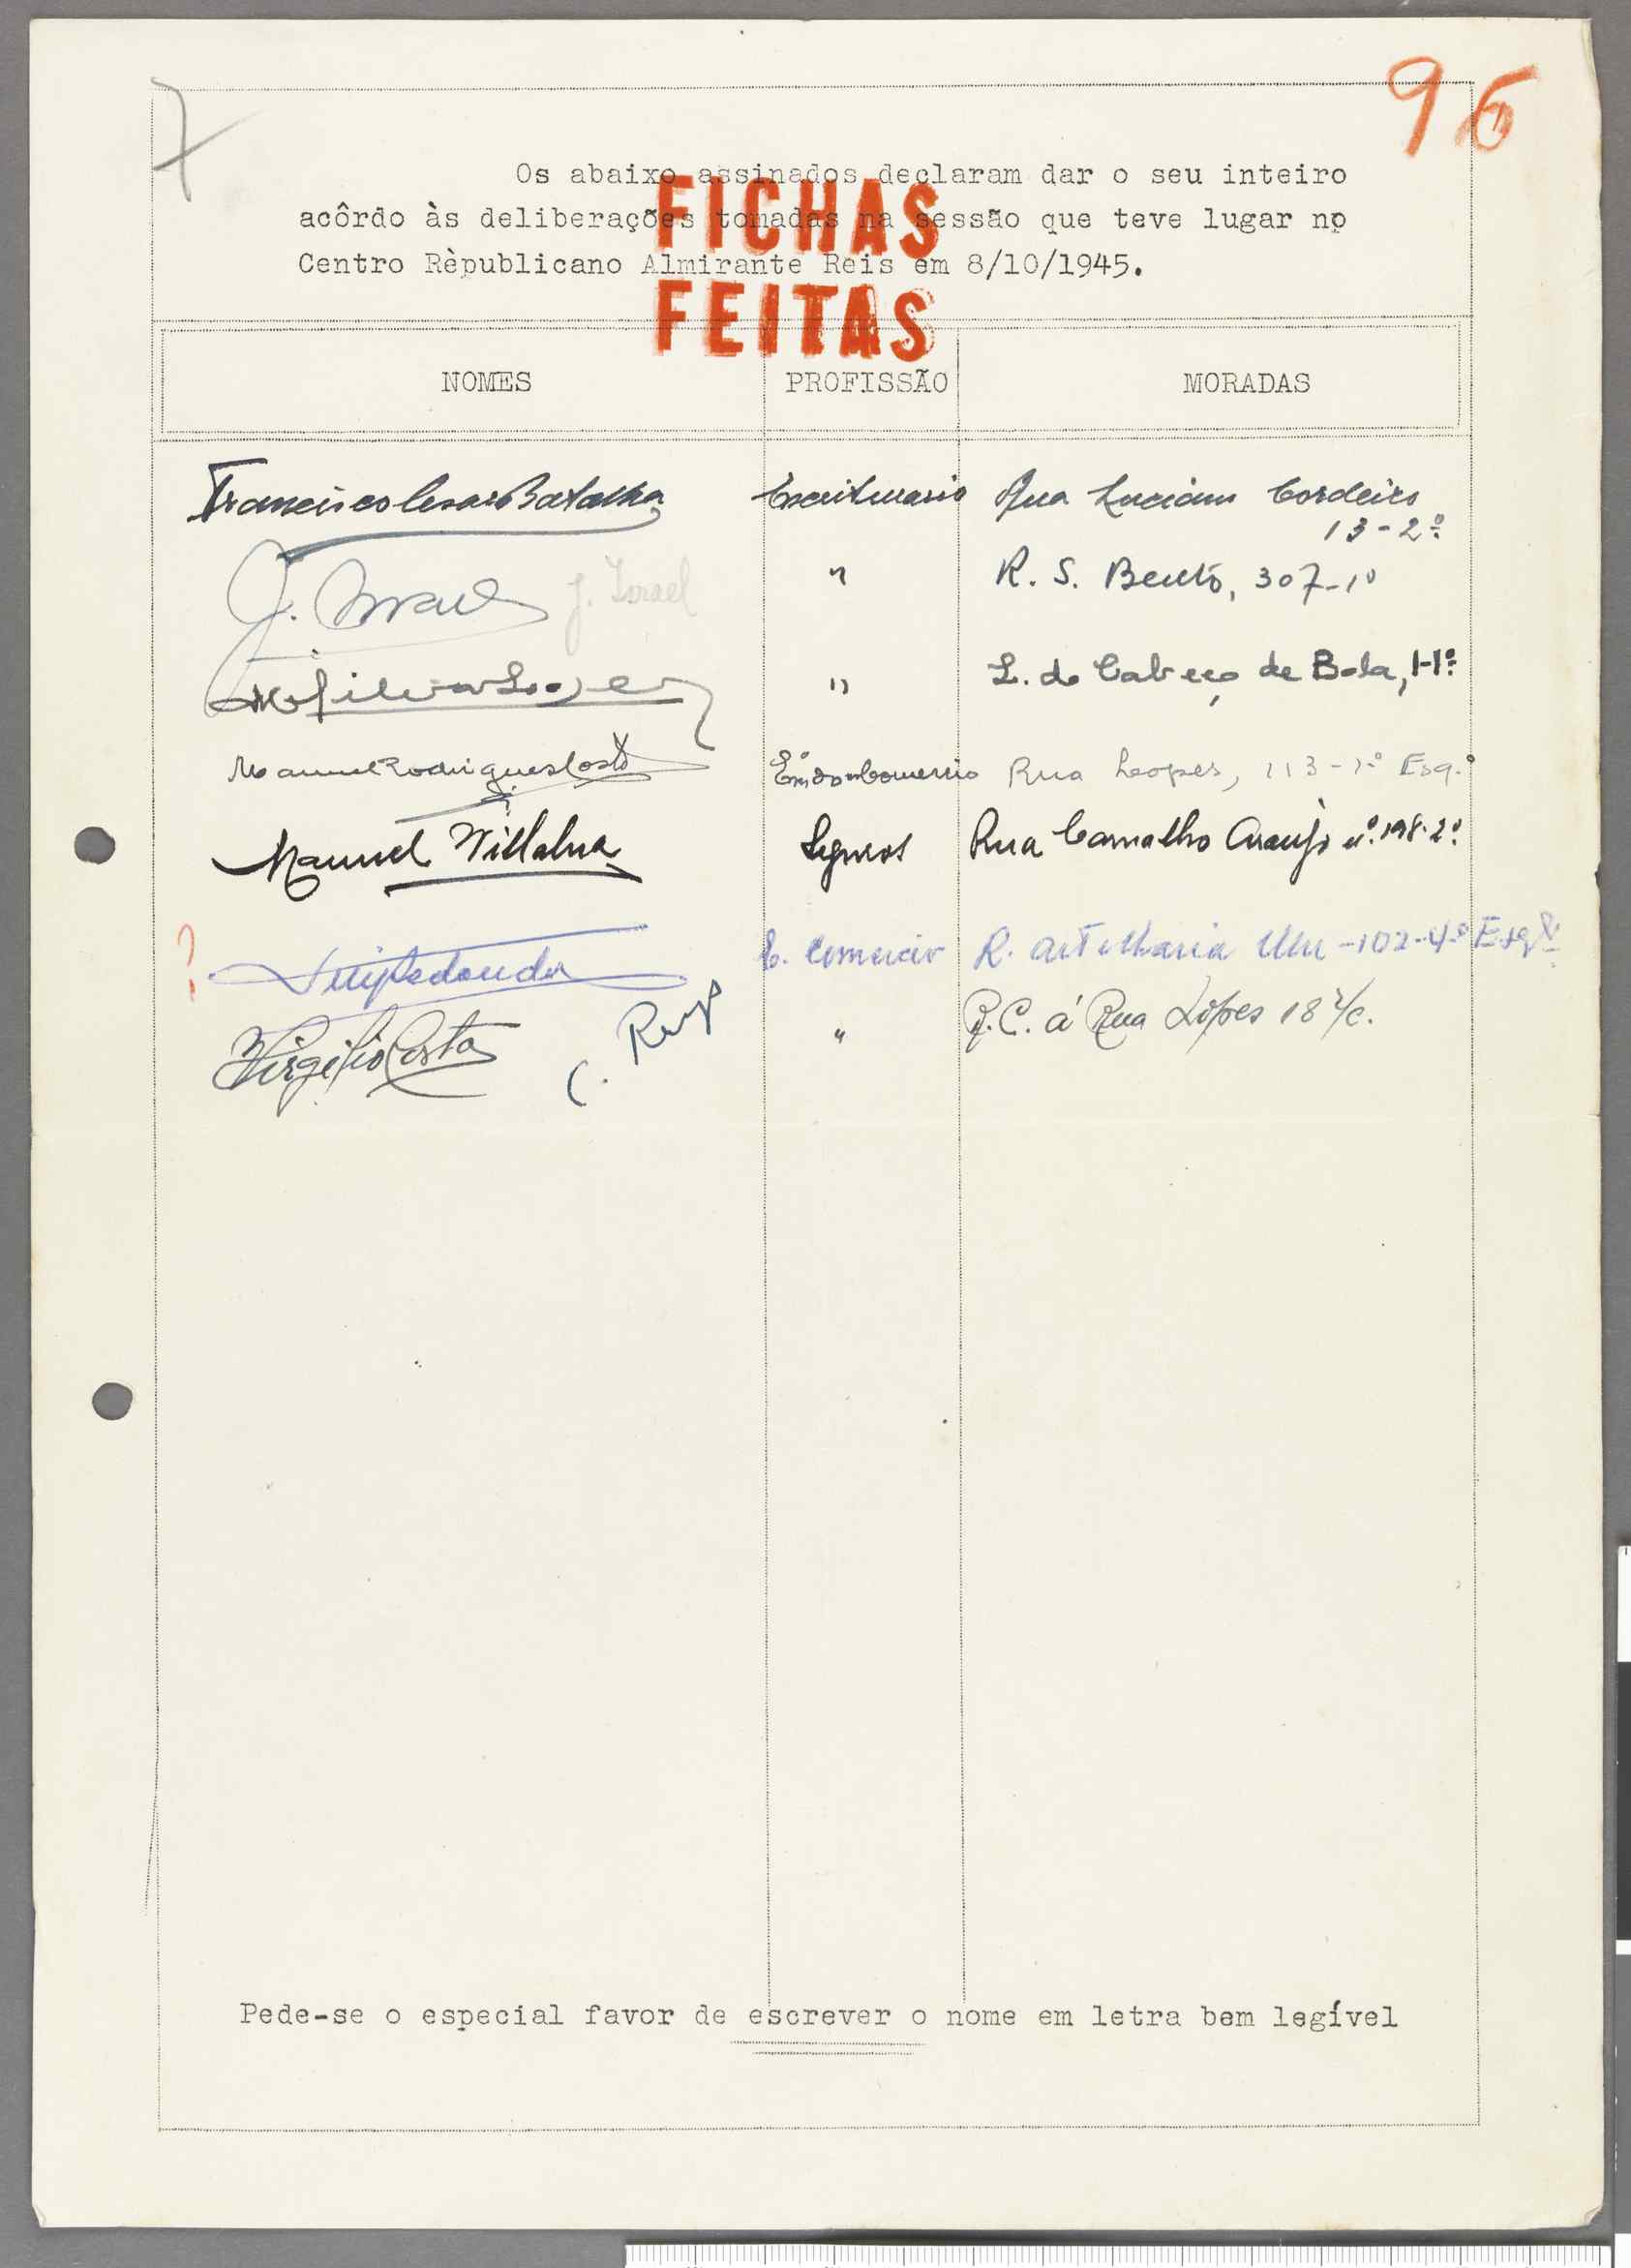 7
96
Os abaixo assinados declaram dar o seu inteiro
acôrdo às deliberações tomadas na sessão que teve lugar no
Centro Rèpublicano Almirante Reis em 8/10/1945.
FICHAS
FEITAS
NOMES PROFISSÃO MORADAS
Francisco Cesar Batalha Escriturario Rua Luciano Cordeiro
13-2º
J. Israel J. Israel " R. S. Bento, 307-1º
Silva Lopes " L. do Cabeço de Bola, 1-1º
Manuel Rodrigues Costa Emp. Comercio Rua Lopes, 113-1º Esq.º
Manuel Villalva Seguros Rua Carvalho Araujo nº 198-2º
? E. Comercio R. Artilharia Um-102-4º Esqº
Virgilio Costa C. Ruy " R.C. á Rua Lopes 18 r/c.
Pede-se o especial favor de escrever o nome em letra bem legível